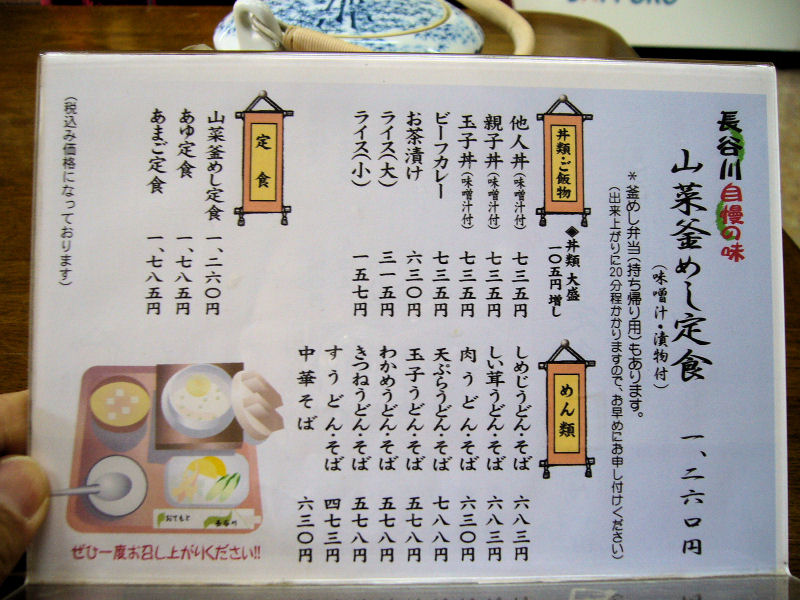 長谷川
自慢の味
山菜釜めし定食 一、二六〇円
(味噌汁・漬物付)
*釜めし弁当(持ち帰り用)もあります。
(出来上がりに20分程かかりますので、お早めにお申し付けください)
丼類・ご飯物
◈丼類 大盛
一〇五円増し
他人丼(味噌汁付) 七三五円
親子丼(味噌汁付) 七三五円
玉子丼(味噌汁付) 七三五円
ビーフカレー 七三五円
お茶漬け 六三〇円
ライス(大) 三一五円
ライス(小) 一五七円
定食
山菜釜めし定食 一、二六〇円
あゆ定食 一、七八五円
あまご定食 一、七八五円
(税込み価格になっております)
めん類
しめじうどん・そば 六八三円
しい茸うどん・そば 六八三円
肉うどん・そば 六三〇円
天ぷらうどん・そば 七八八円
玉子うどん・そば 五七八円
わかめうどん・そば 五七八円
きつねうどん・そば 五七八円
すうどん・そば 四七三円
中華そば 六三〇円
おてもと
長谷川
ぜひ一度お召し上がりください!!